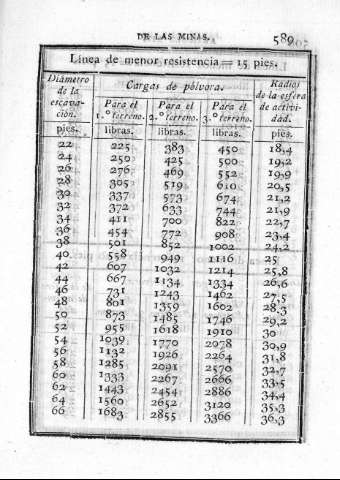 DE LAS MINAS. 589
Línea de menor resistencia = 15 pies.
Diámetro de la escavacion. Cargas de pólvora. Radios de la esfera de actividad.
Para el 1.º terreno. Para el 2.º terreno. Para el 3.º terreno.
pies. libras. libras. libras. pies.
22 225 383 450 18,4
24 250 425 500 19,2
26 276 469 552 19,9
28 305 519 610 20,5
30 337 573 674 21,2
32 372 633 744 21,9
34 411 700 822 22,7
36 454 772 908 23,4
38 501 852 1002 24,2
40 558 949 1116 25
42 607 1032 1214 25,8
44 667 1134 1334 26,6
46 731 1243 1462 27,5
48 801 1359 1602 28,3
50 873 1485 1746 29,2
52 955 1618 1910 30
54 1039 1770 2078 30,9
56 1132 1926 2264 31,8
58 1285 2091 2570 32,7
60 1333 2267 2666 33,5
62 1443 2454 2886 34,4
64 1560 2652 3120 35,3
66 1683 2855 3366 36,3